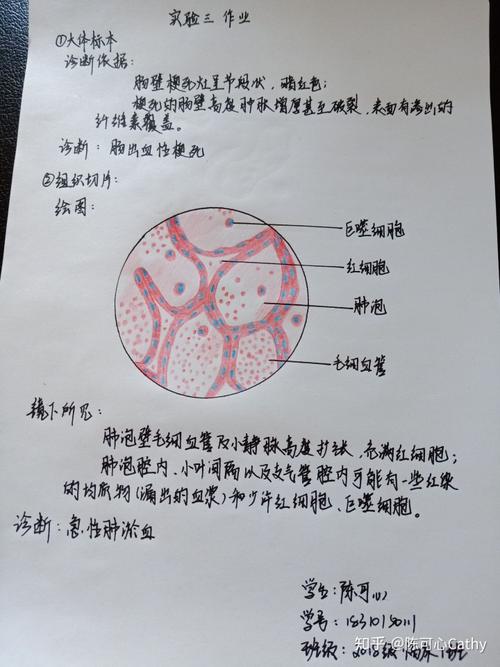 实验三 作业
①大体标本
诊断依据:
肠壁梗死灶呈节段状,暗红色;
梗死的肠壁高度肿胀增厚甚至破裂,表面有渗出的
纤维素覆盖。
诊断:肠出血性梗死
②组织切片:
绘图:
巨噬细胞
红细胞
肺泡
毛细血管
镜下所见:
肺泡壁毛细血管及小静脉高度扩张,充满红细胞;
肺泡腔内、小叶间隔以及支气管腔内可能有一些红染
的均质物(漏出的血浆)和少许红细胞、巨噬细胞。
诊断:急性肺淤血
学生:陈可心
学号:
班级:2018级 临床
知乎 @陈可心Cathy